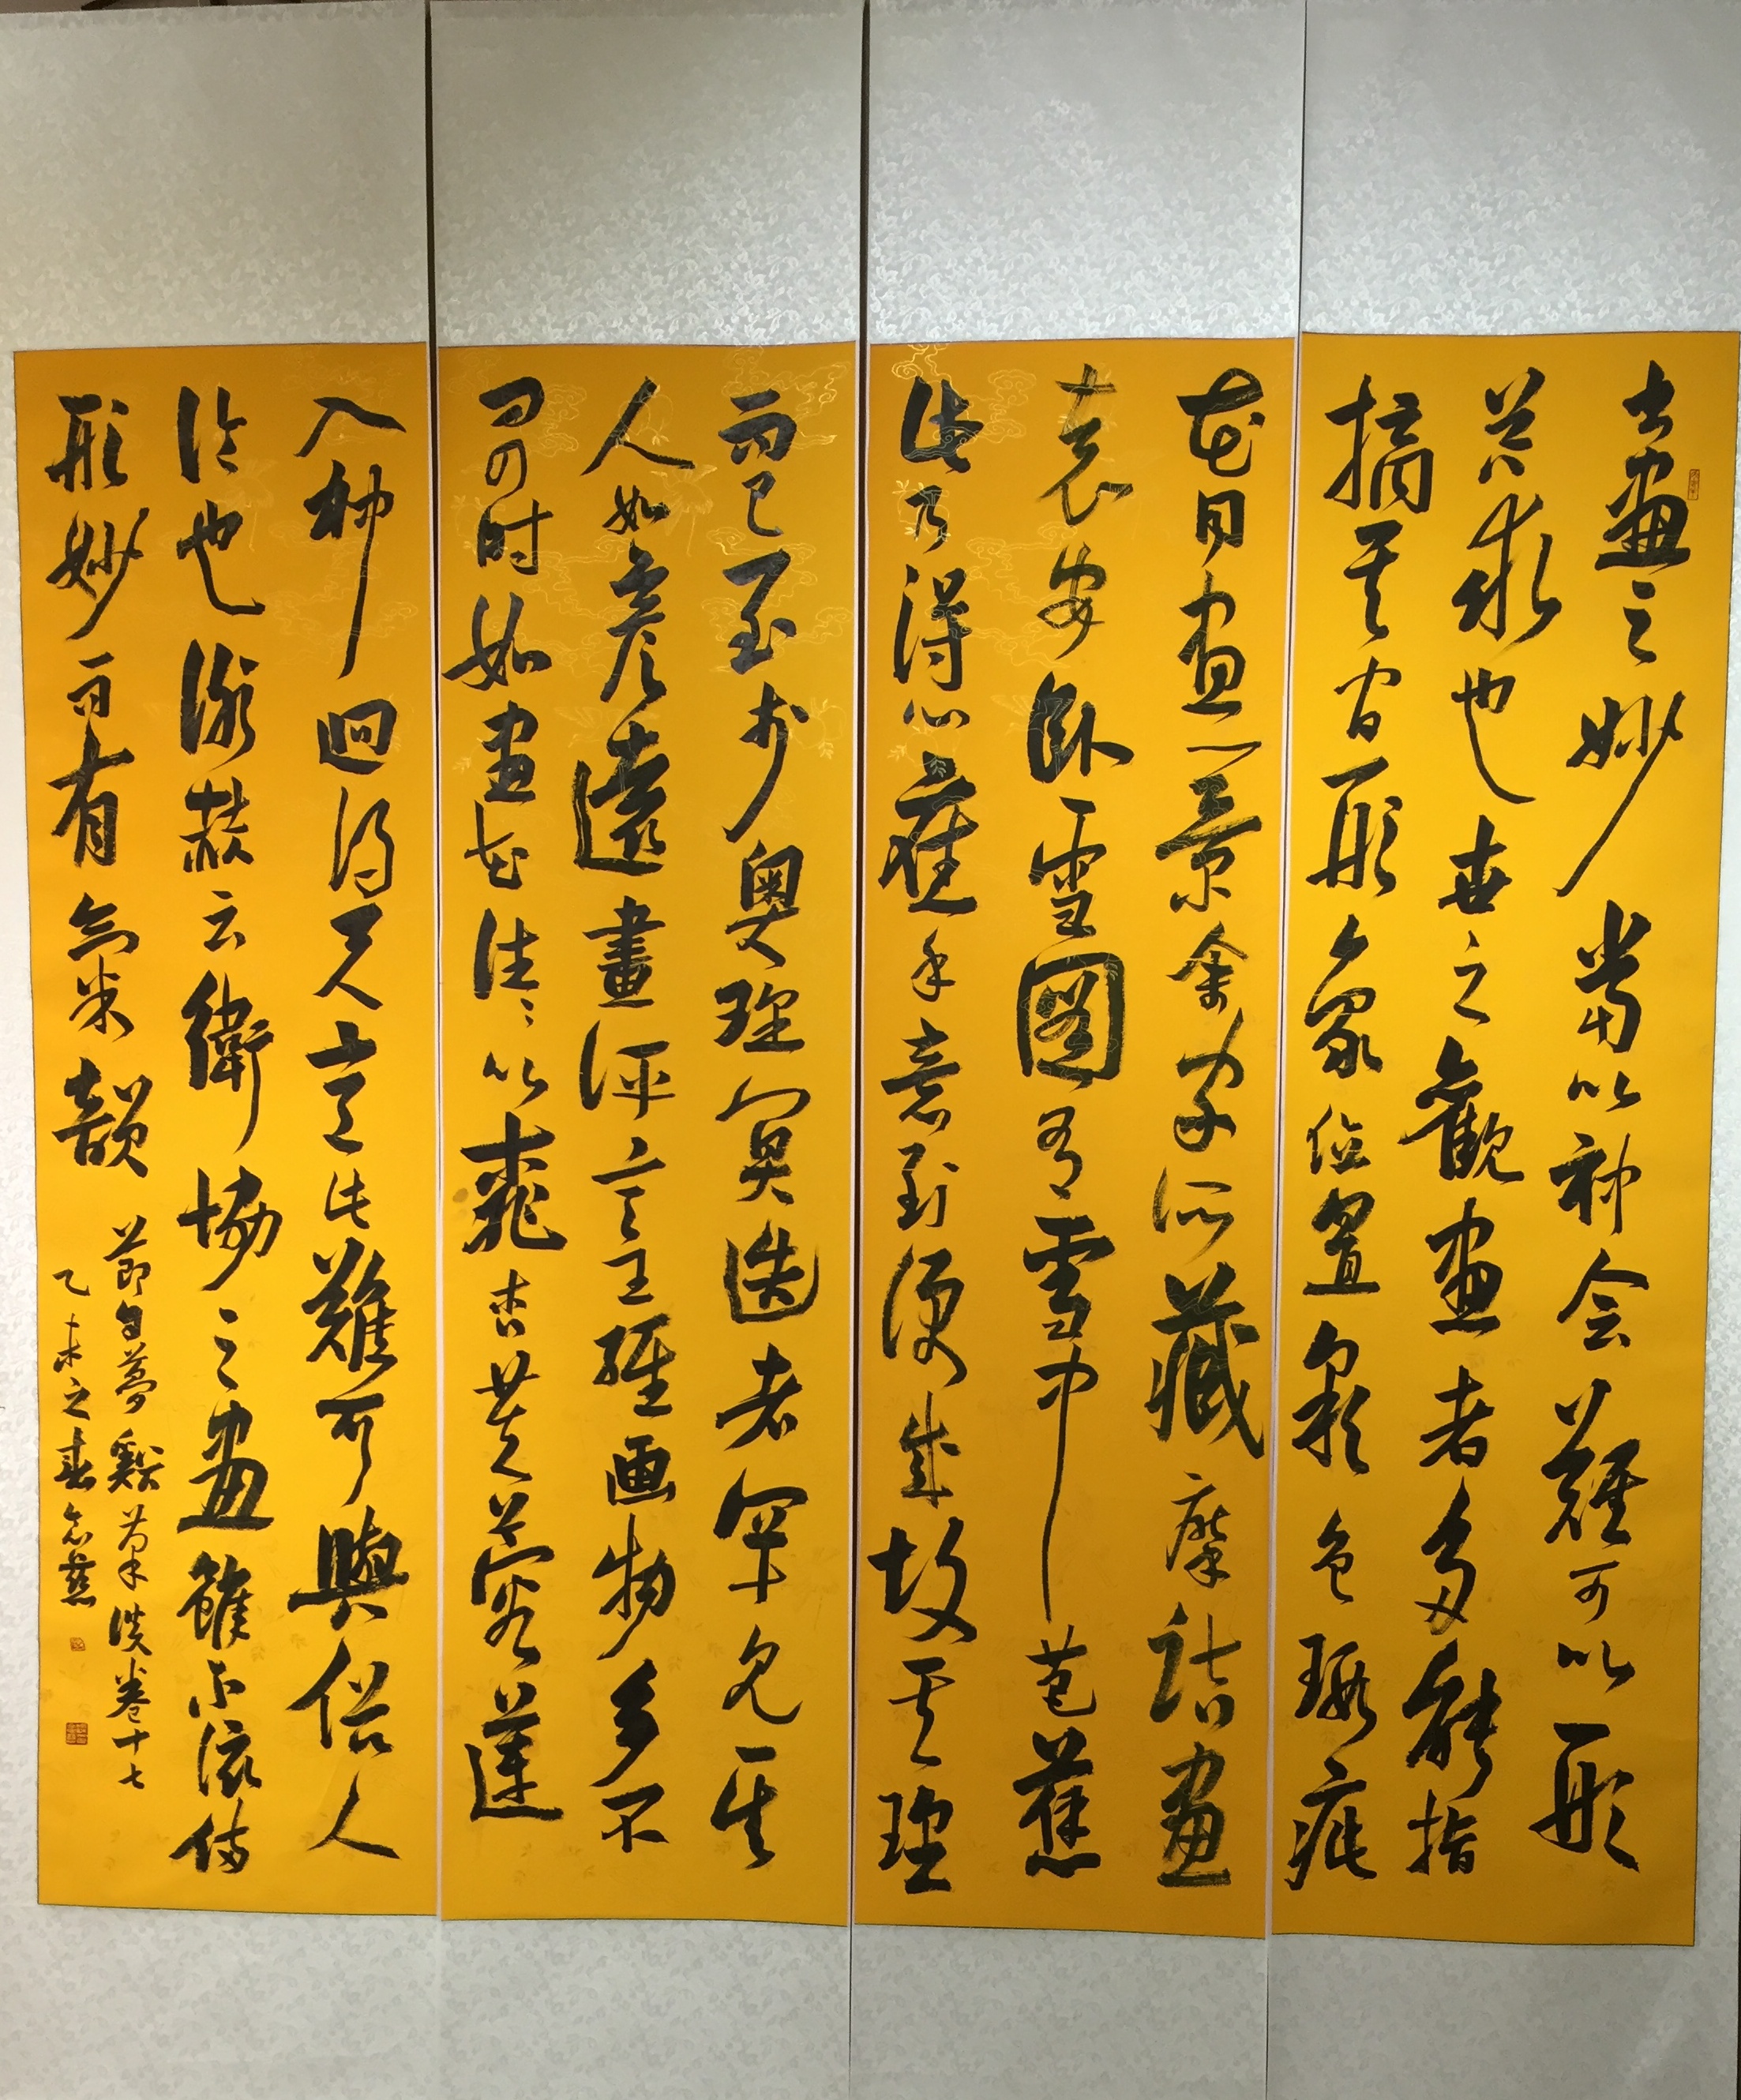 书畫之妙當以神会難可以形
器求也世之觀畫者多能指
摘其间形象位置彩色瑕疵
花同畫一景余家所藏摩詰畫
袁安卧雪圖有雪中芭蕉
此乃得心應手意到便成故其理
而已至於奥理冥造者罕見其
人如彦遠畫評言王維画物多不
问四时如畫花往往以桃杏芙蓉蓮
入神迥得天意此難可與俗人
论也謝赫云衛協之畫雖不該備
形妙而有氣韻
節自夢谿筆談卷十七
乙未之春